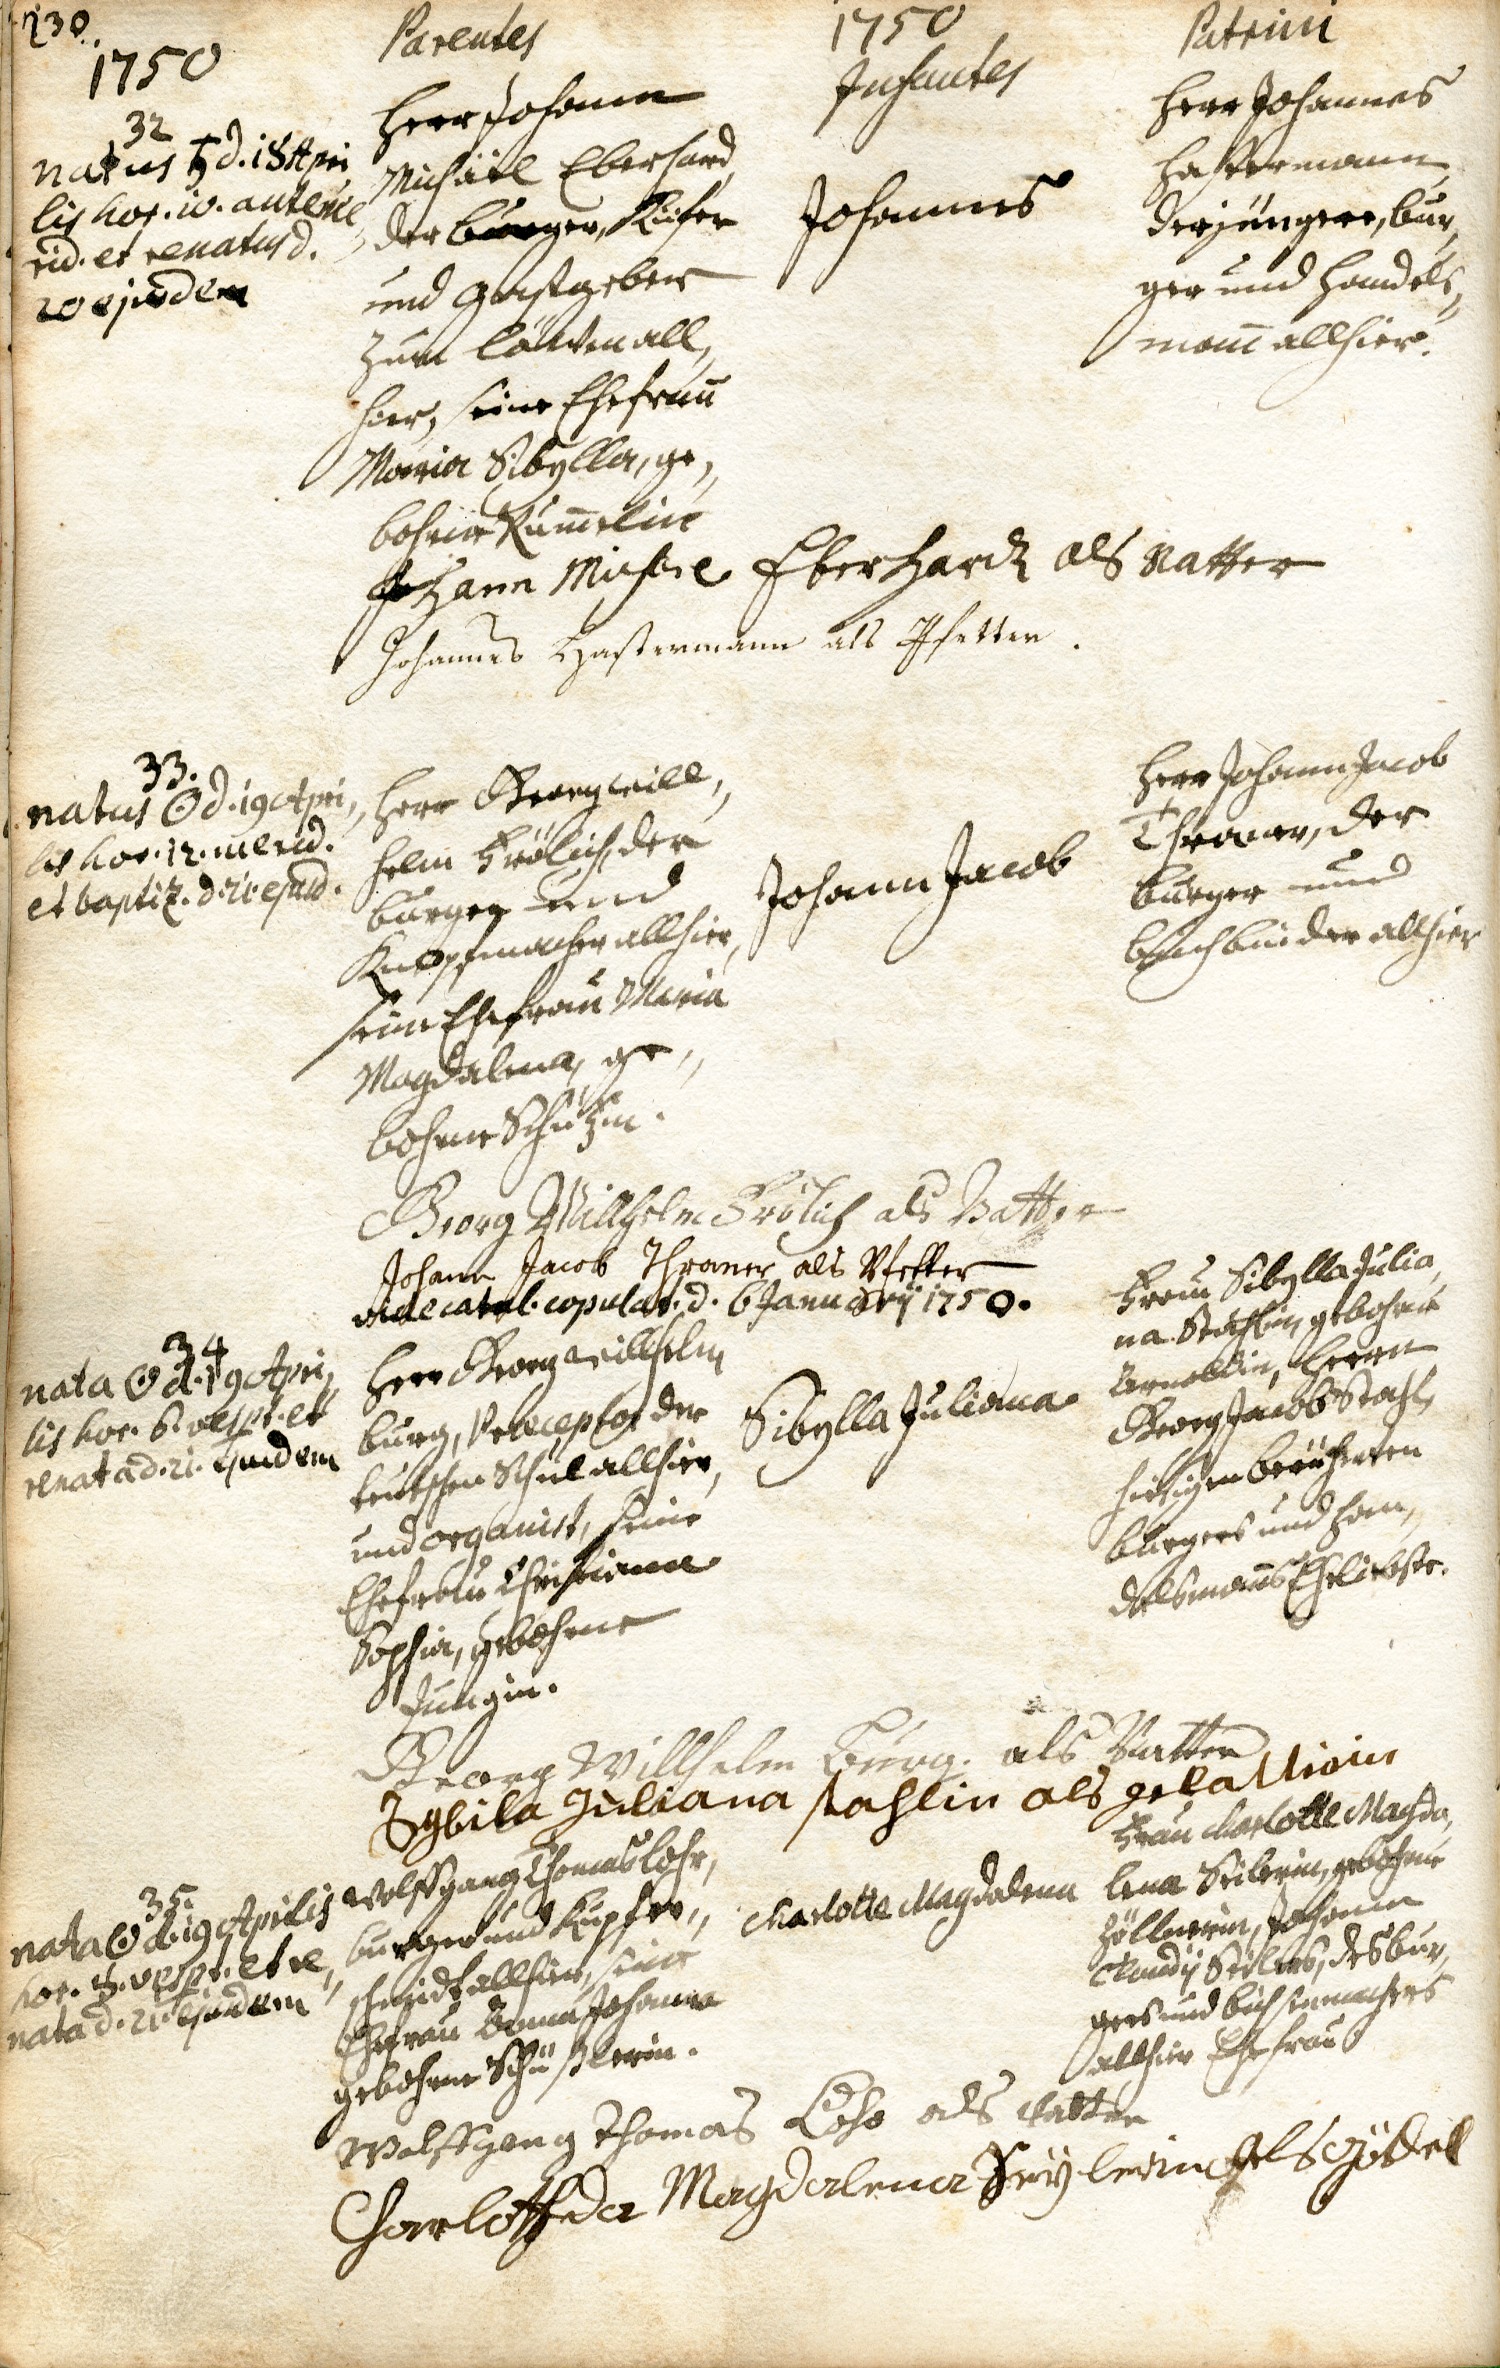 230.
1750
Parentes
1750
Infantes
Patrini
32
natus ♄ d. 18 Apri,
lis hor. 10. anteme,
rid. et renatus d.
20 ejusdem
Herr Johann
Michäel Eberhard,
der burger, Küfer
und Gastgeber
zum Löwen all,
hier, seine Ehefrau
Maria Sibylla, ge,,
bohrne Kümmelin
Johannes
Herr Johannes
Hastermann
der jüngere, bur,
ger und Handels,,
mann allhier.
Johann Michel Eberhardt als Vatter
Johannes Hastermann als Pfetter.
33.
natus ☉ d. 19 Apri,,
lis hor. 12. merid.
et baptiz. d. 21 ejusd.
Herr Georg Will,,
helm Frölich, der
burger und
Knopfmacher allhier,
seine Ehefrau Maria
Magdalena, ge,,
bohrne Schützin.
Johann Jacob
Herr Johann Jacob
Thraner, der
burger und
buchbinder allhier
Georg Willhelm Frölich als Vatter
Johann Jacob Thraner als Pfetter
vide catal. copulat. d. 6 Januarij 1750.
34
nata ☉ d. 19 Apri,
lis hor. 6. vespt. et
renata d. 21. ejusdem
Herr Georg Willhelm
burg, Praeceptor der
teutschen Schul allhier,
und organist, seine
Ehefrau Christiana
Sophia, gebohrne
Jungin.
Sibylla Juliana
Frau Sibylla Julia,
na Stahlin, gebohrne
Arnoldin, Herrn
Georg Jacob Stahl,
hiesigen berühmten
burgers und Han,
delsmanns Eheliebste.
Georg Willhelm Burg. als Vatter
Sybila Juliana stahlin als gefatterin
35.
nata ☉ d. 19 Aprilis
hor. 3. vespt. et re,,
nata d. 21. ejusdem
Wolffgang Thomas Lohr,
burger und Kupfer,,
schmidt allhier, seine
Ehefrau Anna Johanna
gebohrne Schüßlerin.
Charlotte Magdalena
Frau Charlotte Magda,
lena Seilerin, gebohrne
Zöllnerin, Johann
Claudij Seilers, des bur,
gers und büchsenmachers
allhier Ehefrau
Wolffgang Thomas Lohr als Vatter
Charlotteda Magdalena Seylerin als Göttel